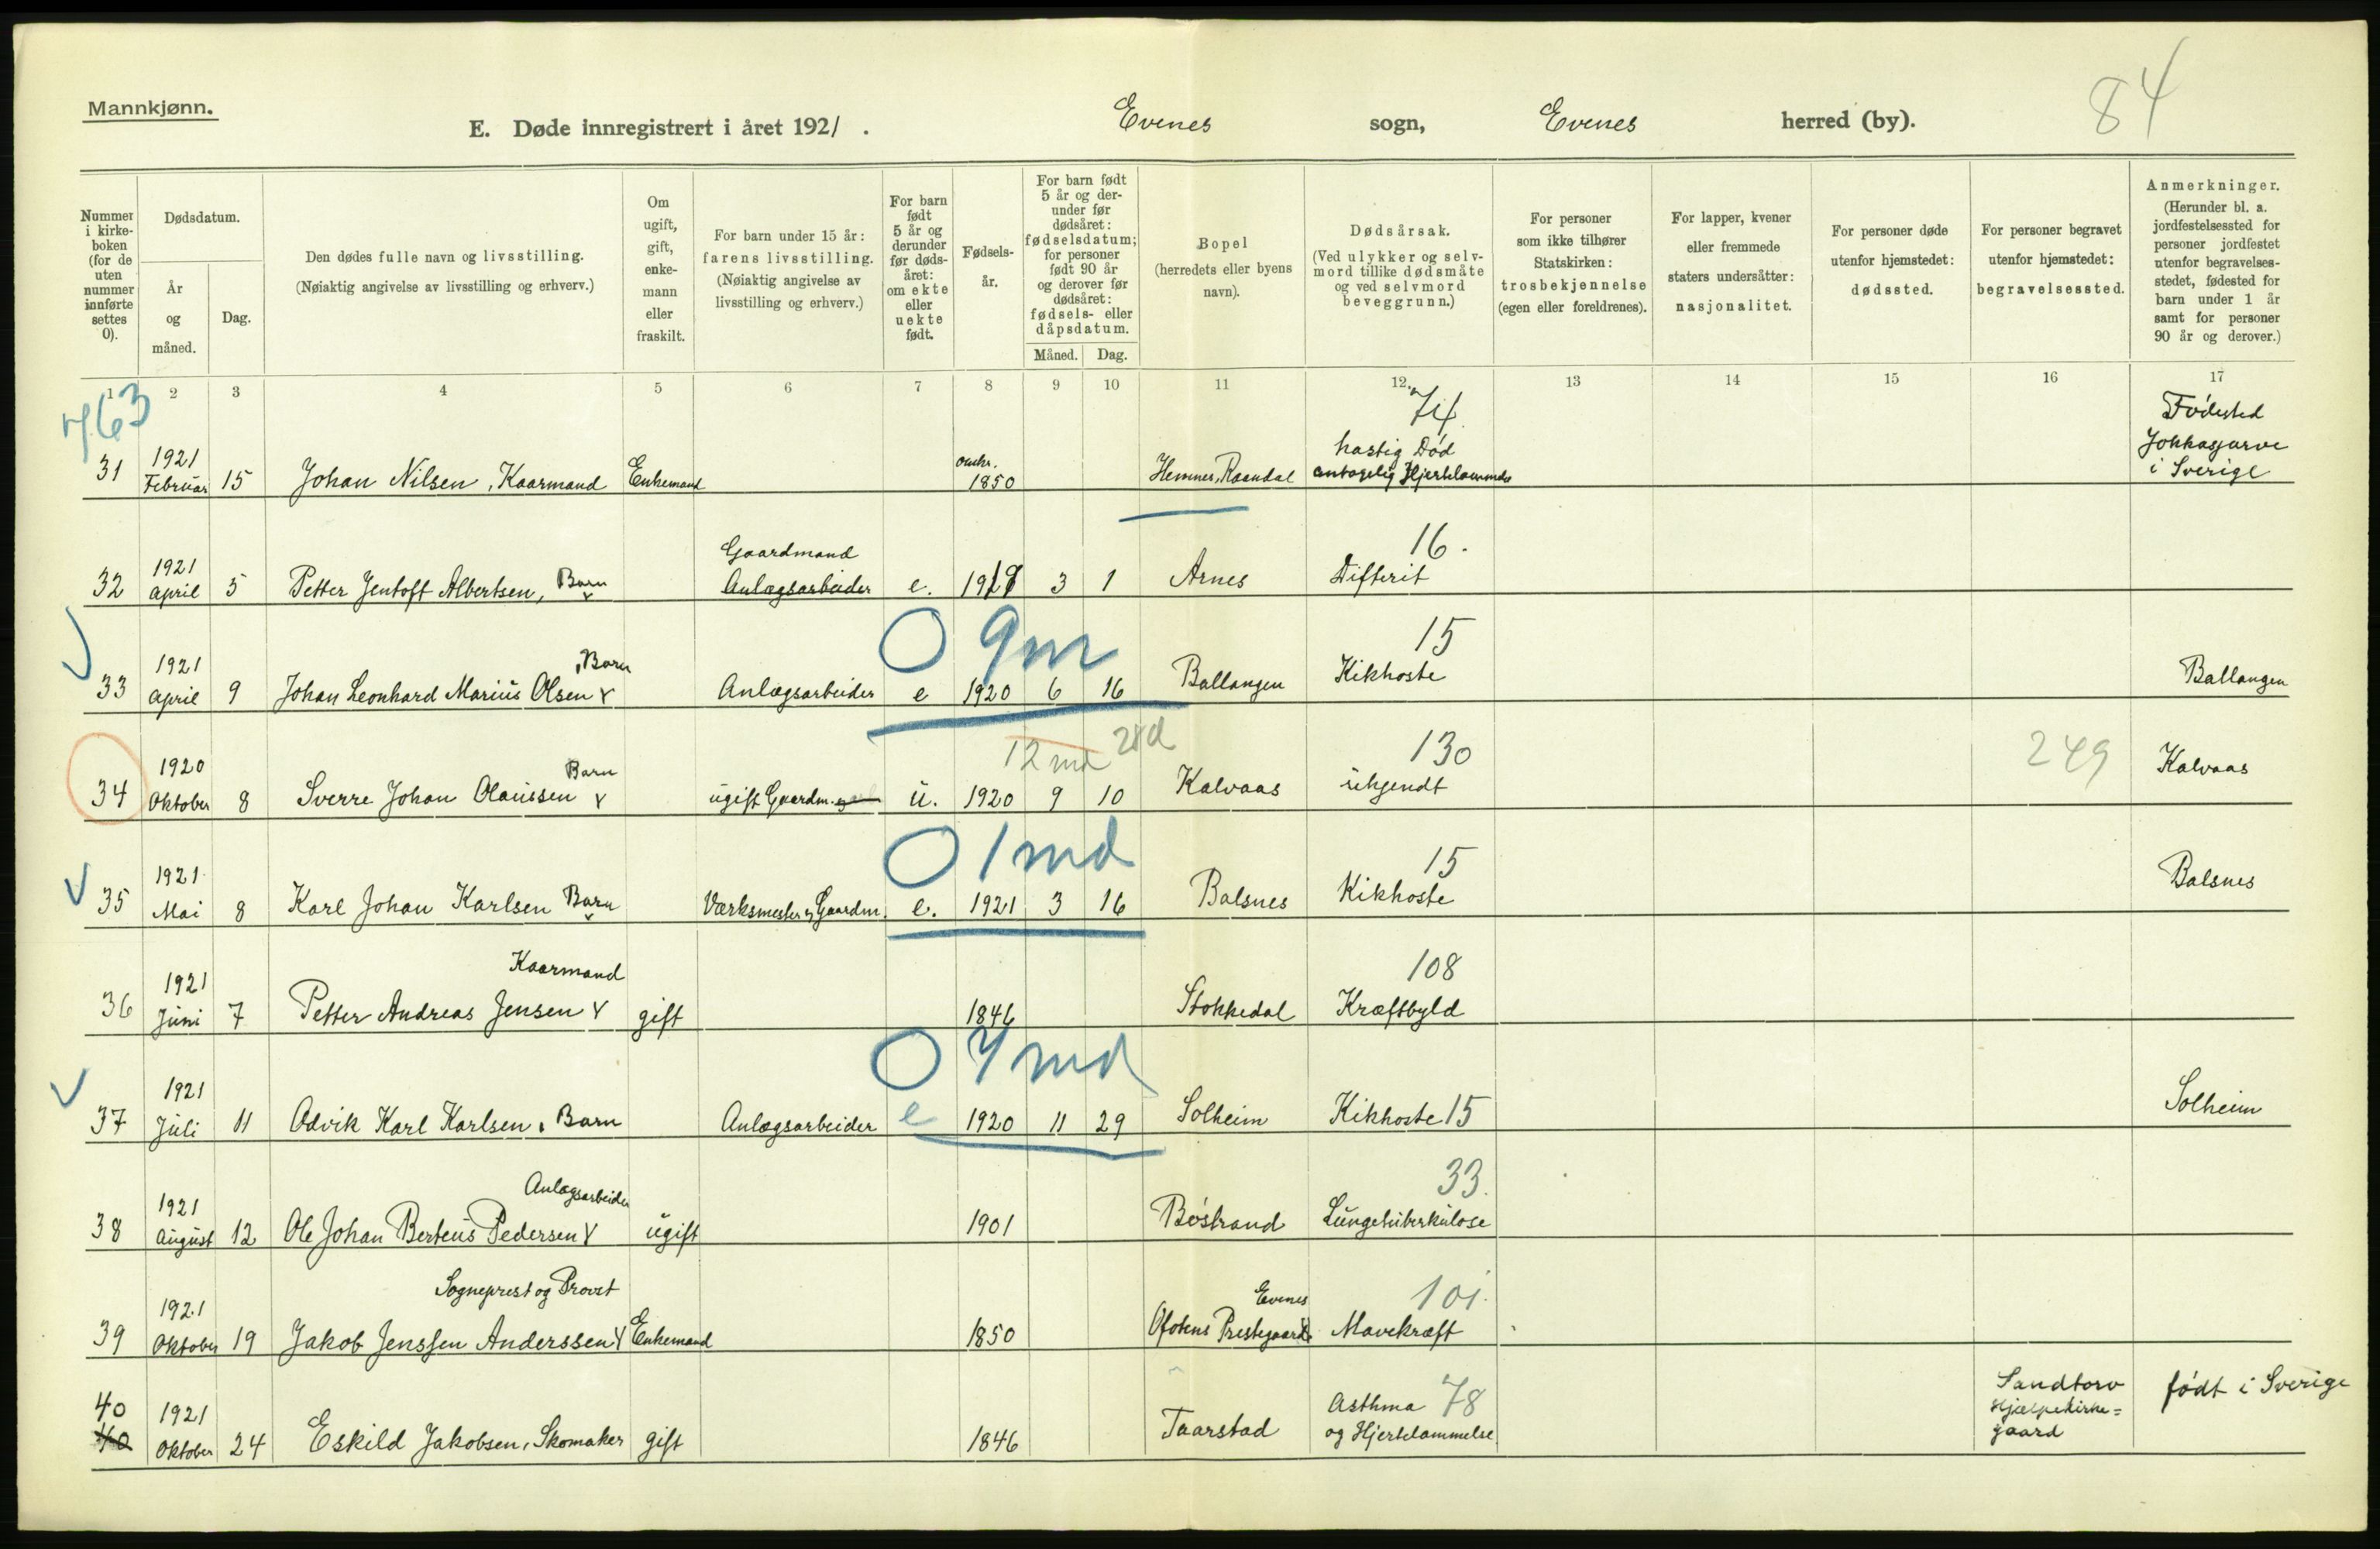 Mannkjønn.
E. Døde innregistrert i året 1921. Evenes sogn, Evenes herred (by). 84
Nummer i kirkeboken (for de uten nummer innførte settes 0).
Dødsdatum.
År og måned.
Dag.
Den dødes fulle navn og livsstilling.
(Nøiaktig angivelse av livsstilling og erhverv.)
Om ugift, gift, enkemann eller fraskilt.
For barn under 15 år: farens livsstilling.
(Nøiaktig angivelse av livsstilling og erhverv.)
For barn født 5 år og derunder før dødsåret: om ekte eller uekte født.
Fødselsår.
For barn født 5 år og derunder før dødsåret: fødselsdatum; for personer født 90 år og derover før dødsåret: fødsels- eller dåpsdatum.
Måned. Dag.
Bopel
(herredets eller byens navn).
Dødsårsak.
(Ved ulykker og selvmord tillike dødsmåte og ved selvmord beveggrunn.)
For personer som ikke tilhører Statskirken: trosbekjennelse
(egen eller foreldrenes).
For lapper, kvener eller fremmede staters undersåtter: nasjonalitet.
For personer døde utenfor hjemstedet: dødssted.
For personer begravet utenfor hjemstedet: begravelsessted.
Anmerkninger.
(Herunder bl. a. jordfestelsessted for personer jordfestet utenfor begravelsesstedet, fødested for barn under 1 år samt for personer 90 år og derover.)
1 2 3 4 5 6 7 8 9 10 11 12. 13 14 15 16 17
763
74.
31 1921 Februar 15 Johan Nilsen, Kaarmand Enkemand omkr. 1850 Hemnes, Raandal hastig Død antagelig Hjertelammelse Fødested Jokkasjarve i Sverige
16.
32 1921 April 5 Petter Jentoft Albertsen, Barn Gaardmand Anlægsarbeider e. 1919 3 1 Arnes Difterit
0 9m 15
33 1921 April 9 Johan Leonhard Marius Olsen, Barn Anlægsarbeider e 1920 6 16 Ballangen Kikhoste Ballangen
12 md 28d 130 249
34 1920 Oktober 8 Sverre Johan Olaussen Barn ugift Gaardm. u. 1920 9 10 Kalvaas ukjendt Kalvaas
0 1md 15
35 1921 Mai 8 Karl Johan Karlsen Barn Værksmester og Gaardm. e. 1921 3 16 Balsnes Kikhoste Balsnes
108
36 1921 Juni 7 Petter Andreas Jensen Kaarmand gift 1846 Stokkedal Kræftbyld
0 7md
37 1921 Juli 11 Odvik Karl Karlsen, Barn Anlægsarbeider e 1920 11 29 Solheim Kikhoste 15 Solheim
33.
38 1921 August 12 Ole Johan Berteus Pedersen Anlægsarbeider ugift 1901 Bøstrand Lungetuberkulose
101.
39 1921 Oktober 19 Jakob Jenssen Anderssen Sogneprest og Provst Enkemand 1850 Ofotens Prestegaard Evenes Mavekræft
40 40 1921 Oktober 24 Eskild Jakobsen, Skomaker gift 1846 Taarstad Asthma 78 og Hjertelammelse Sandtorv Hjælpekirkegaard født i Sverige